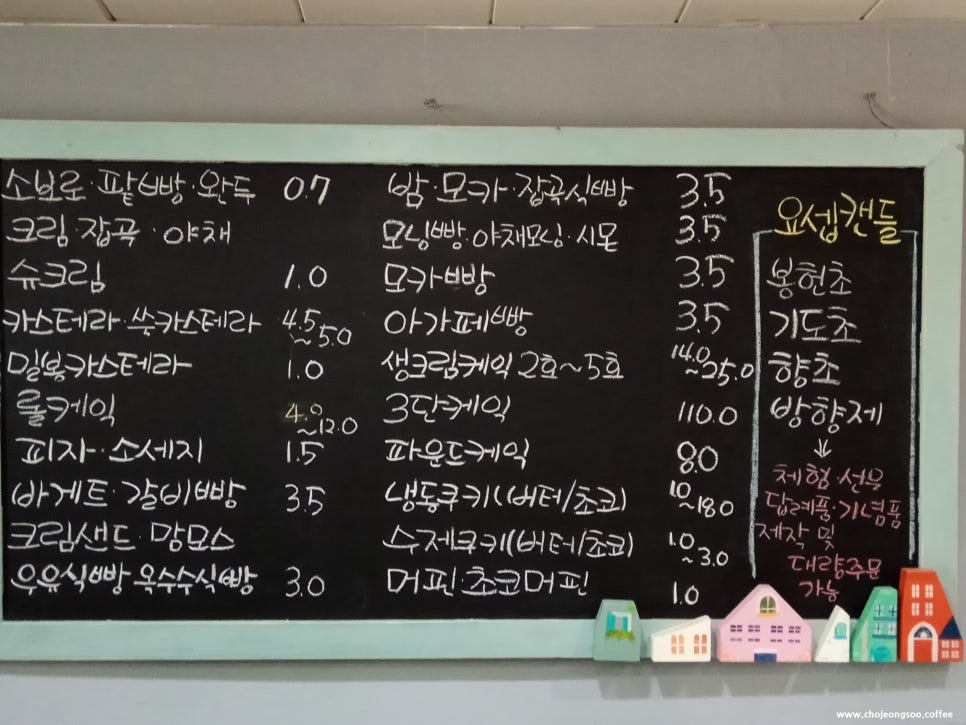 소보로·팥빵·완두 0.7
크림·잡곡·야채
슈크림 1.0
카스테라·쑥카스테라 4.5~5.0
밀봉카스테라 1.0
롤케익 4.0~12.0
피자·소세지 1.5
바게트·갈비빵 3.5
크림샌드·맘모스
우유식빵 옥수수식빵 3.0
밤·모카·잡곡식빵 3.5
모닝빵·야채모닝·시몬 3.5
모카빵 3.5
아가페빵 3.5
생크림케익 2호~5호 14.0~25.0
3단케익 110.0
파운드케익 8.0
냉동쿠키(버터/초코) 1.0~18.0
수제쿠키(버터/초코) 1.0~3.0
머핀 초코머핀 1.0
요셉캔들
봉헌초
기도초
향초
방향제
↓
체험·선물
답례품·기념품
제작 및
대량주문
가능
www.chojeongsoo.coffee